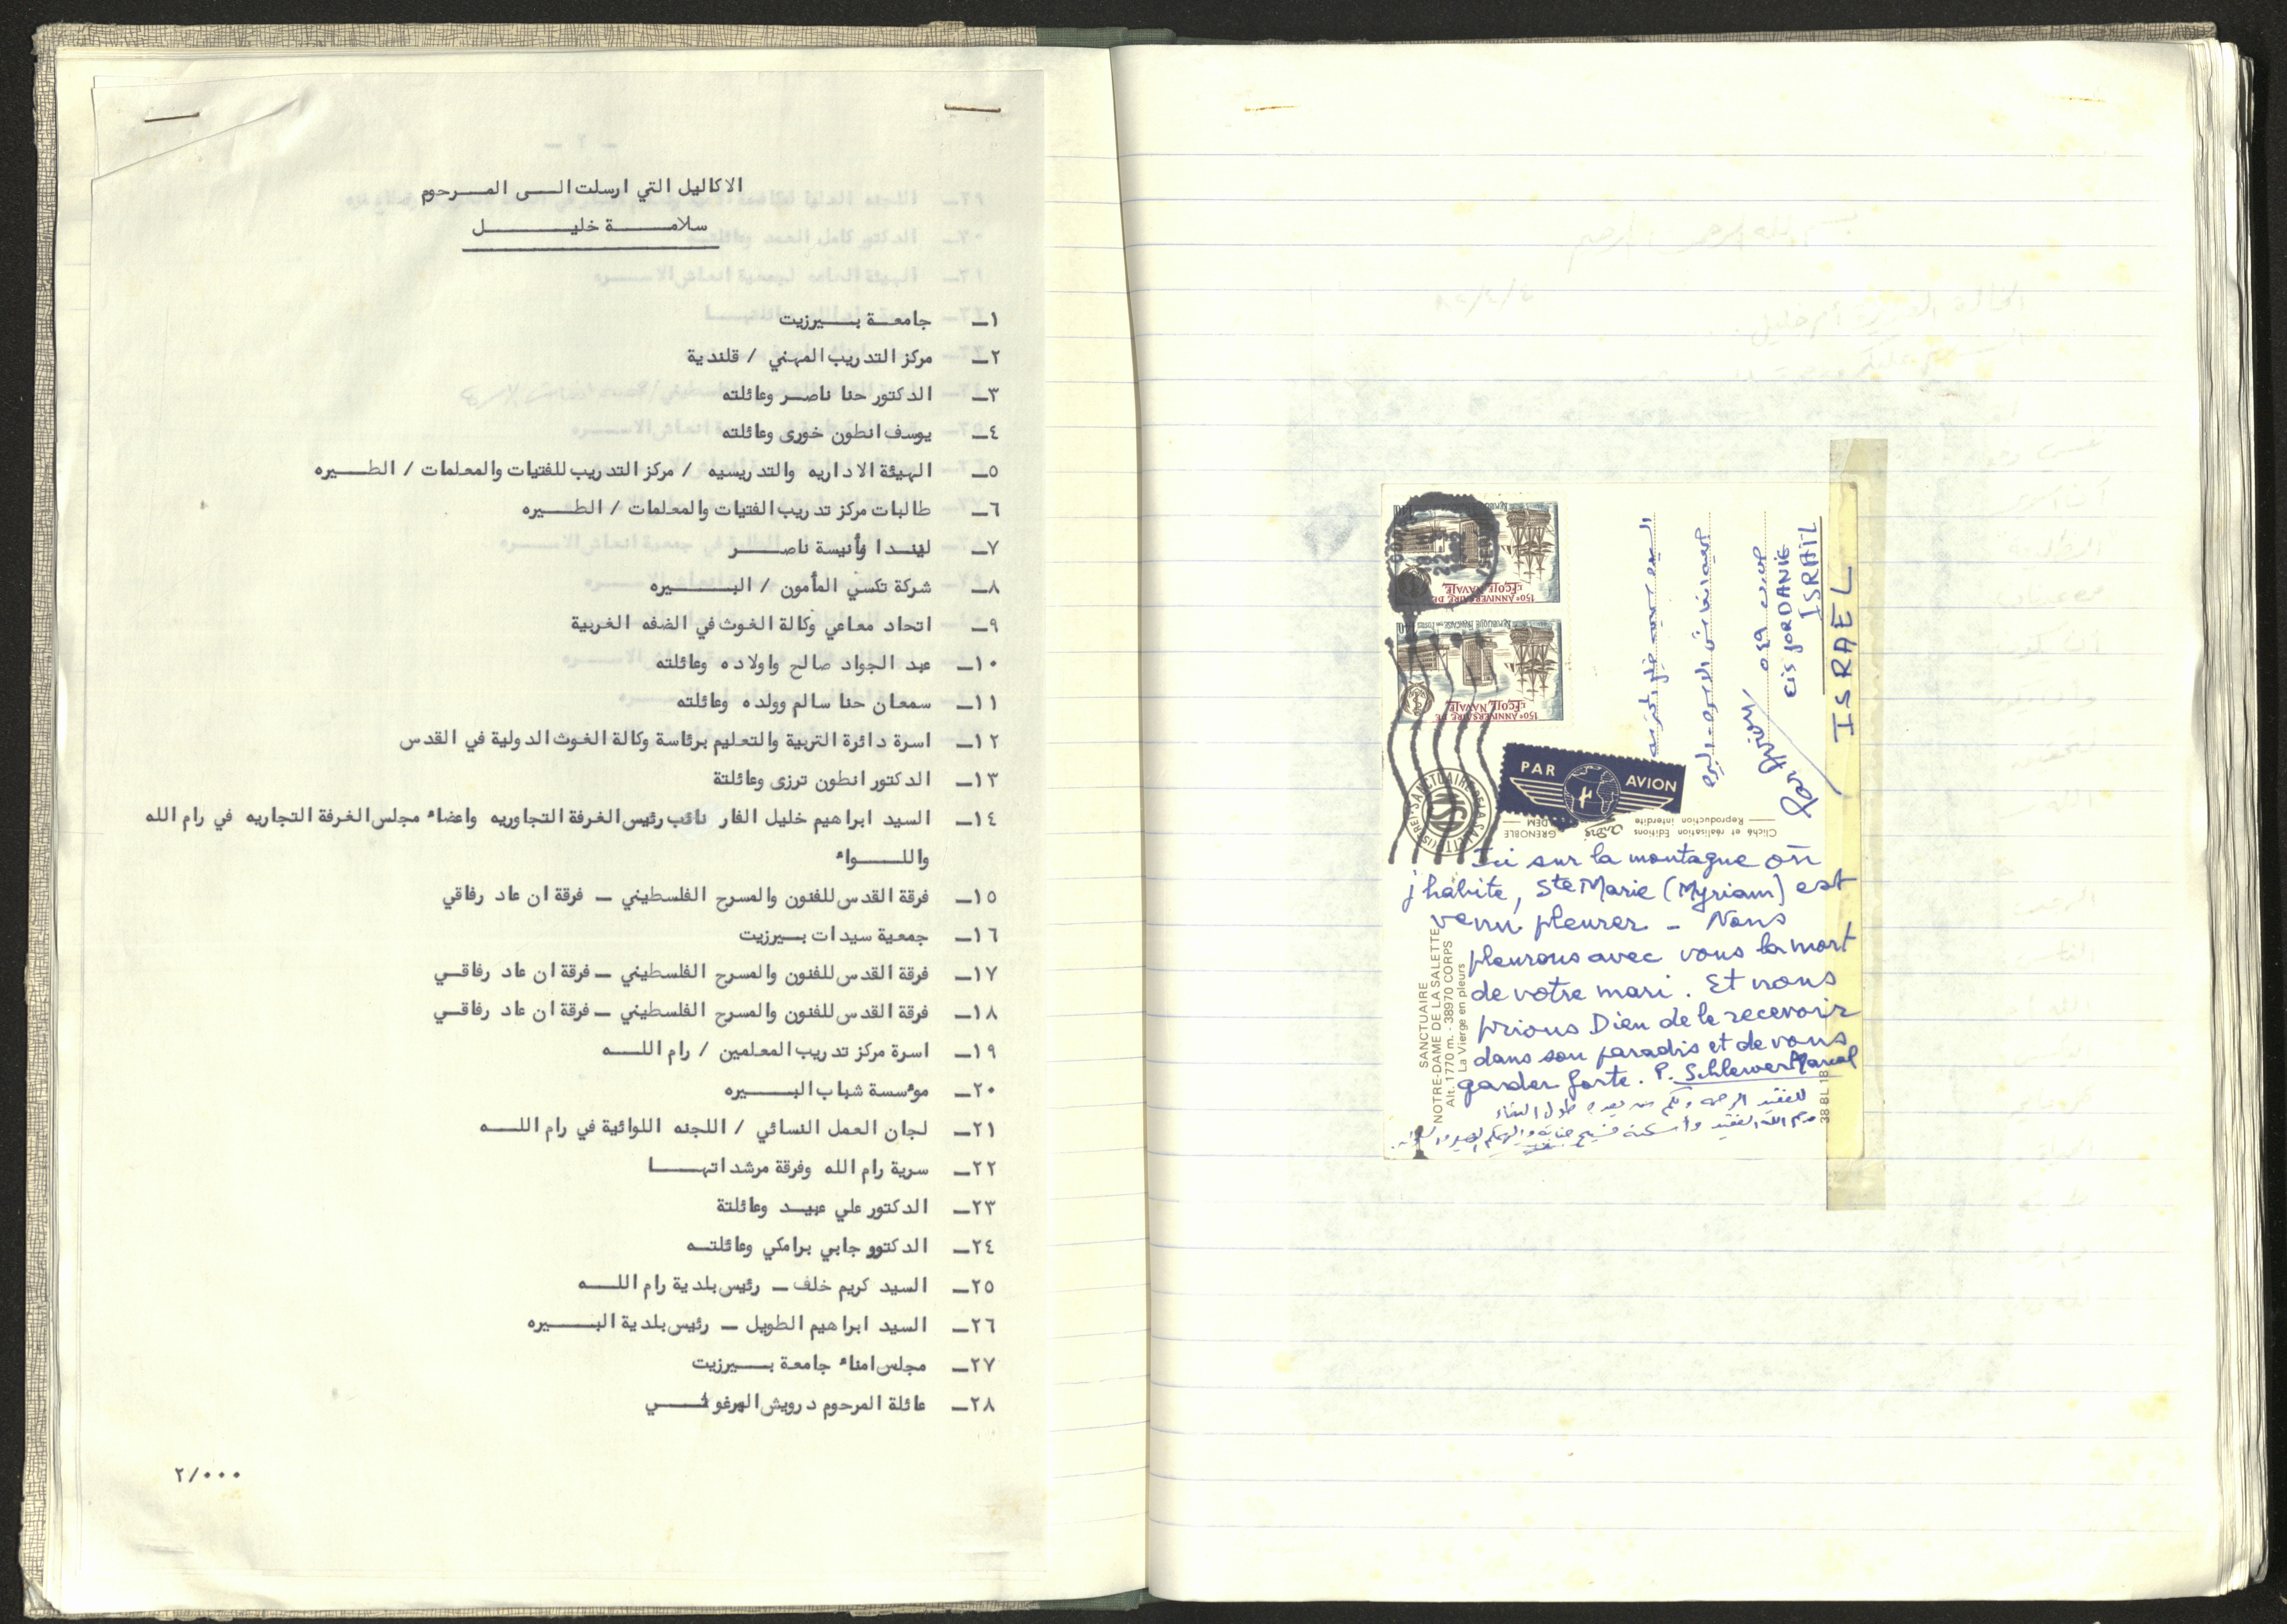 الاكاليل التي ارسلت الى المرحوم
سلامة خليل
١ـ جامعة بيرزيت
٢ـ مركز التدريب المهني / قلندية
٣ـ الدكتور حنا ناصر وعائلته
٤ـ يوسف انطون خورى وعائلته
٥ـ الهيئة الاداريه والتدريسيه / مركز التدريب للفتيات والمعلمات / الطيره
٦ـ طالبات مركز تدريب الفتيات والمعلمات / الطيره
٧ـ ليندا وأنيسة ناصر
٨ـ شركة تكسي المأمون / البيره
٩ـ اتحاد معاعي وكالة الغوث في الضفه الغربية
١٠ـ عبد الجواد صالح واولاده وعائلته
١١ـ سمعان حنا سالم وولده وعائلته
١٢ـ اسرة دائرة التربية والتعليم برئاسة وكالة الغوث الدولية في القدس
١٣ـ الدكتور انطون ترزى وعائلتة
١٤ـ السيد ابراهيم خليل الفار نائب رئيس الغرفة التجاوريه واعضاء مجلس الغرفة التجاريه في رام الله
واللواء
١٥ـ فرقة القدس للفنون والمسرح الفلسطيني ـ فرقة ان عاد رفاقي
١٦ـ جمعية سيدات بيرزيت
١٧ـ فرقة القدس للفنون والمسرح الفلسطيني ـ فرقة ان عاد رفاقي
١٨ـ فرقة القدس للفنون والمسرح الفلسطيني ـ فرقة ان عاد رفاقي
١٩ـ اسرة مركز تدريب المعلمين / رام الله
٢٠ـ موءسسة شباب البيره
٢١ـ لجان العمل النسائي / اللجنه اللوائية في رام الله
٢٢ـ سرية رام الله وفرقة مرشداتها
٢٣ـ الدكتور علي عبيد وعائلتة
٢٤ـ الدكتوو جابي برامكي وعائلته
٢٥ـ السيد كريم خلف ـ رئيس بلدية رام الله
٢٦ـ السيد ابراهيم الطويل ـ رئيس بلدية البيره
٢٧ـ مجلس امناء جامعة بيرزيت
٢٨ـ عائلة المرحوم درويش البرغوثي
٢/٠٠٠
150e ANNIVERSAIRE DE
L'ÉCOLE NAVALE
150e ANNIVERSAIRE DE
L'ÉCOLE NAVALE
جمعية انعاش الاسرة - البيرة
ص.ب ٥٤٩
CIS JORDANIE
ISRAIL
ISRAEL
Par Avion
PAR AVION
Cliché et réalisation Editions
Reproduction interdite
GRENOBLE
Ici sur la montagne où
j'habite, Ste Marie (Myriam) est
venu pleurer - Nous
pleurons avec vous la mort
de votre mari. Et nous
prions Dieu de le recevoir
dans son paradis et de vous
garder forte. P. Schlewer Marcel
للفقيد الرحمة ولكم من بعده طول البقاء
رحم الله الفقيد وأسكنه فسيح جنانه والهمكم الصبر
SANCTUAIRE
NOTRE-DAME DE LA SALETTE
Alt. 1770 m. - 38970 CORPS
La Vierge en pleurs
38 BL 18